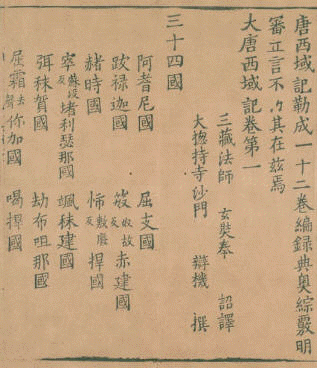 唐西域記勒成一十二卷編録典奥綜覈明
審正言不其在茲焉
大唐西域記卷第一
三藏法師 玄奘奉 詔譯
大揔持寺沙門 辯機 撰
三十四國
阿耆尼國 屈支國
跋禄迦國 笯奴故反赤建國
赭時國 㤄敷廢反捍國
窣蘇沒反堵利瑟那國 颯秣建國
弭秣賀國 劫布呾那國
屈霜去聲你加國 喝捍國